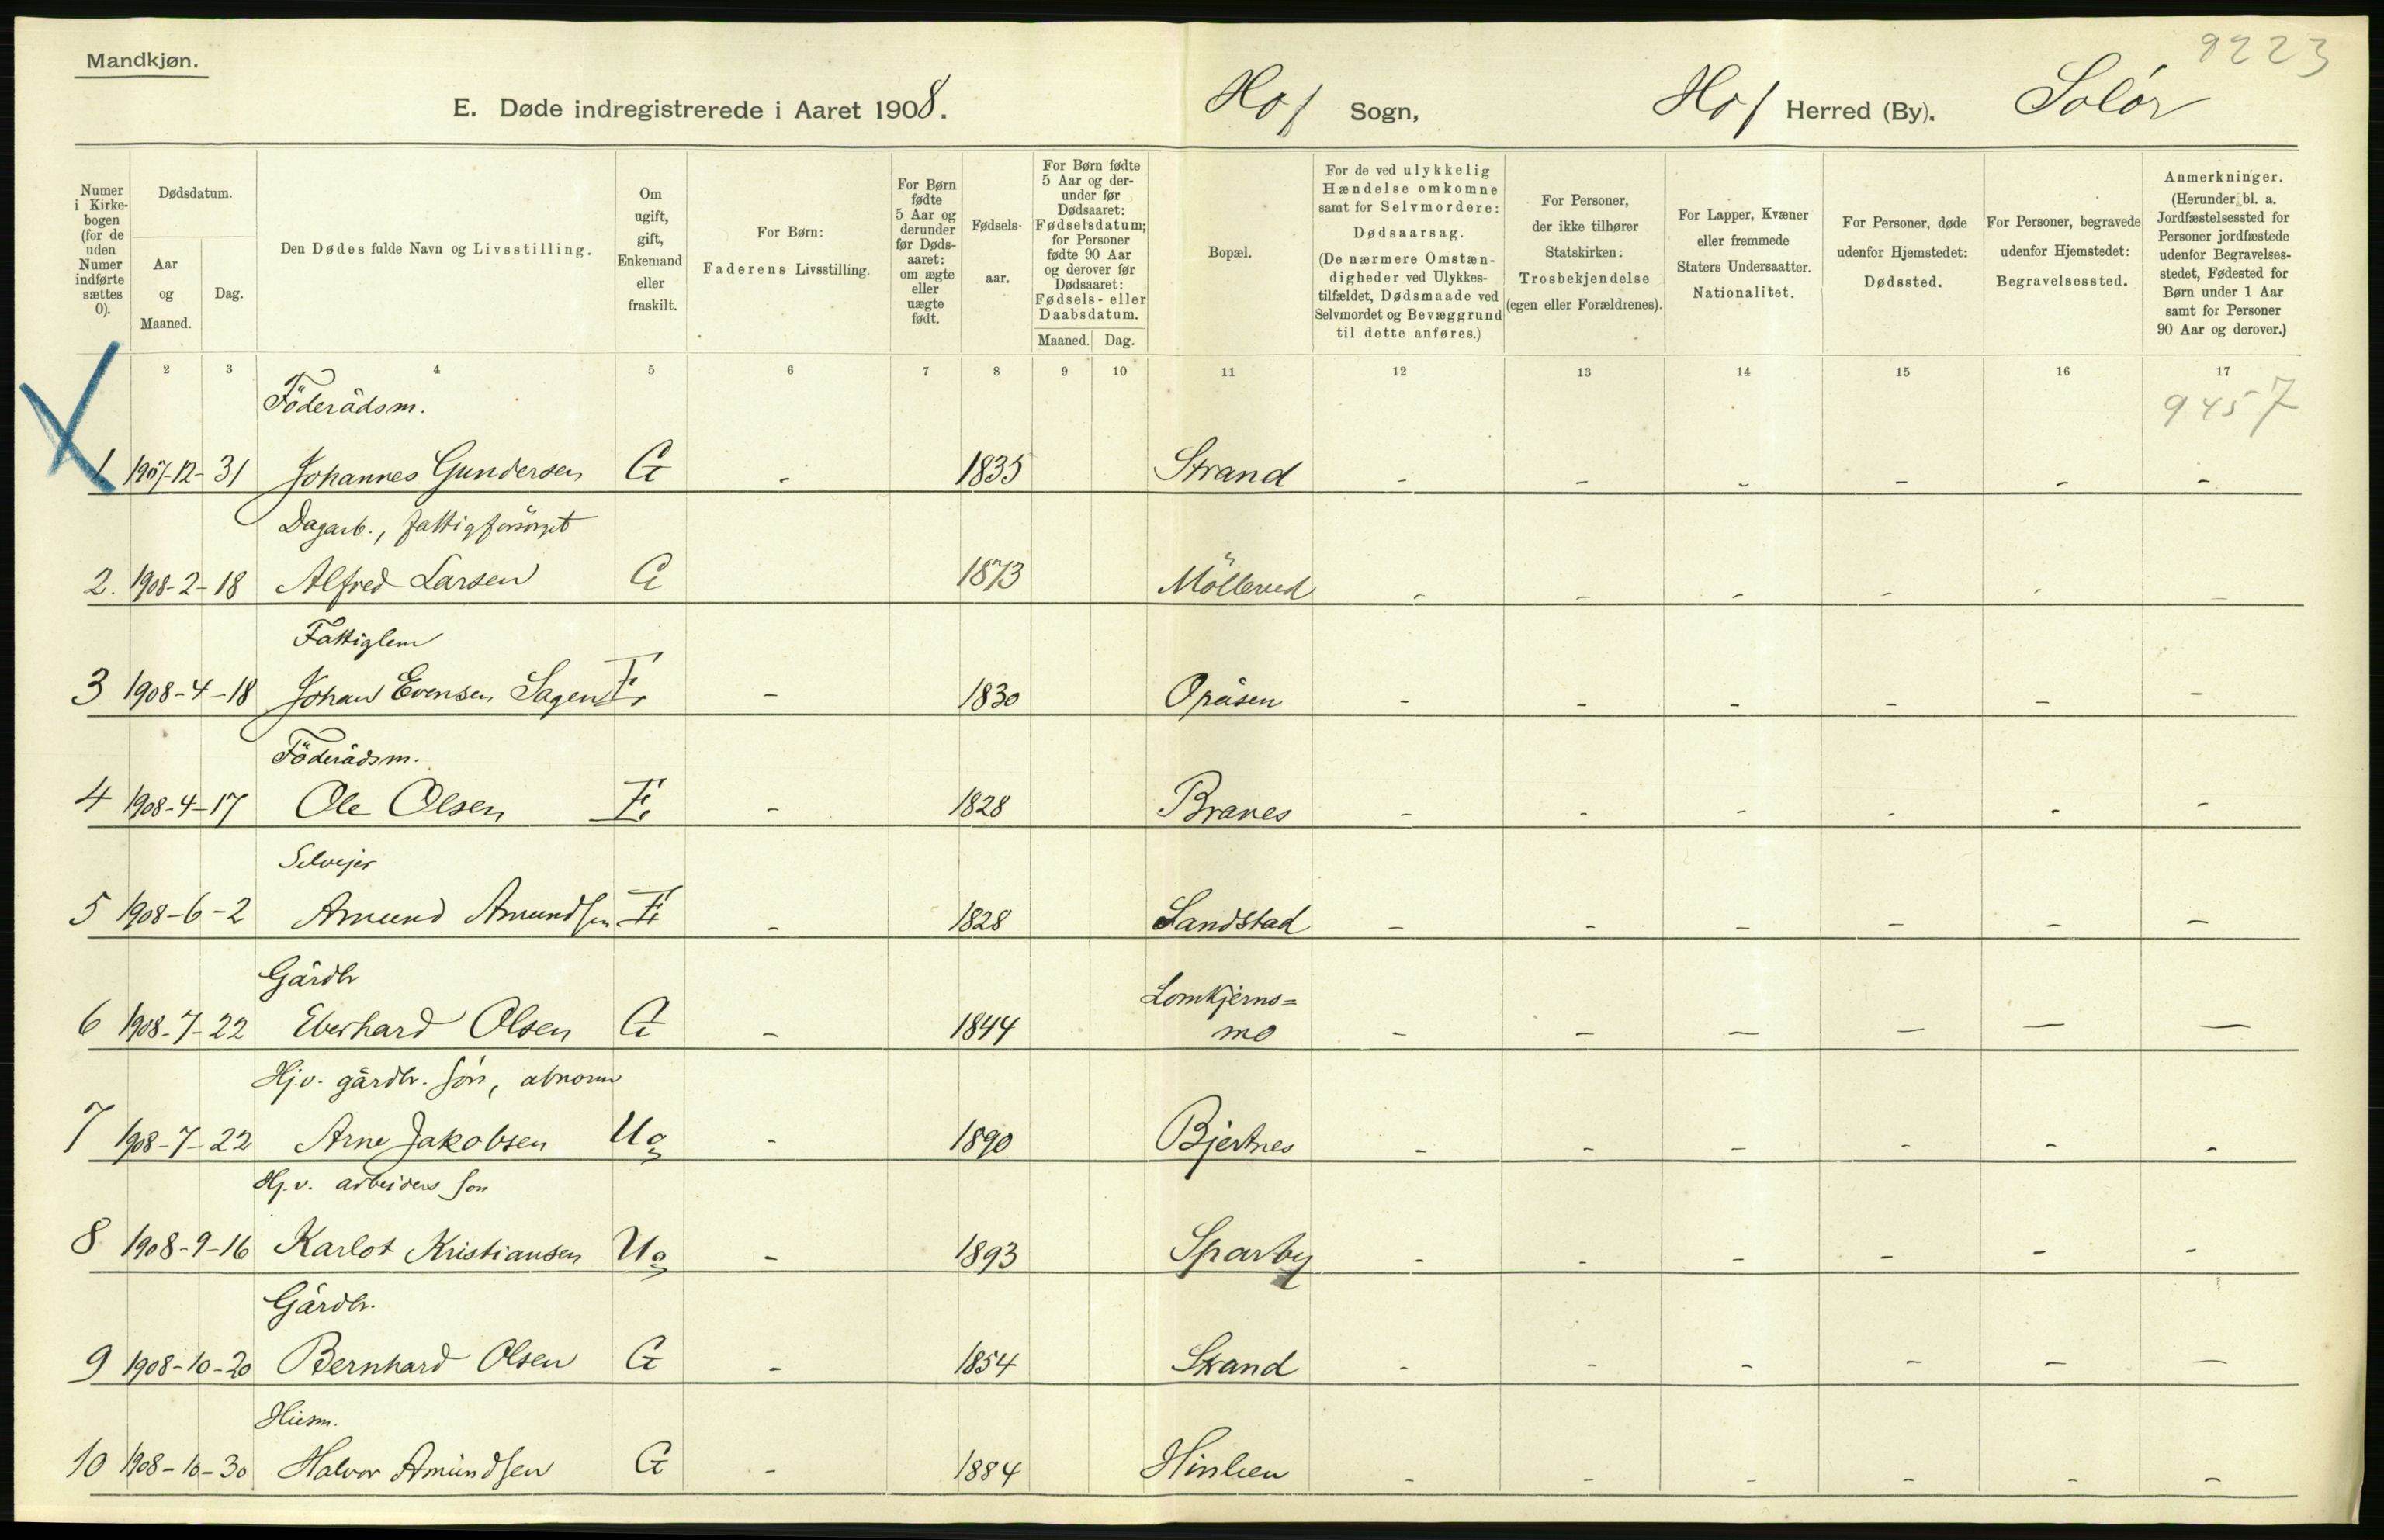 9223
Mandkjøn.
E. Døde indregistrerede i Aaret 1908. Hof Sogn, Hof Herred (By). Solør
Numer i Kirkebogen (for de uden Numer indførte sættes 0).
Dødsdatum.
Aar og Maaned.
Dag.
Den Dødes fulde Navn og Livsstilling.
Om ugift, gift, Enkemand eller fraskilt.
For Børn: Faderens Livsstilling.
For Børn fødte 5 Aar og derunder før Dødsaaret: om ægte eller uægte født.
Fødselsaar.
For Børn fødte 5 Aar og derunder før Dødsaaret: Fødselsdatum; for Personer fødte 90 Aar og derover før Dødsaaret: Fødsels- eller Daabsdatum.
Maaned. Dag.
Bopæl.
For de ved ulykkelig Hændelse omkomne samt for Selvmordere: Dødsaarsag. (De nærmere Omstændigheder ved Ulykkestilfældet, Dødsmaade ved Selvmordet og Bevæggrund til dette anføres.)
For Personer, der ikke tilhører Statskirken: Trosbekjendelse (egen eller Forældrenes).
For Lapper, Kvæner eller fremmede Staters Undersaatter. Nationalitet.
For Personer, døde udenfor Hjemstedet: Dødssted.
For Personer, begravede udenfor Hjemstedet: Begravelsessted.
Anmerkninger. (Herunder bl. a. Jordfæstelsessted for Personer jordfæstede udenfor Begravelsesstedet, Fødested for Børn under 1 Aar samt for Personer 90 Aar og derover.)
2 3 4 5 6 7 8 9 10 11 12 13 14 15 16 17
9457
Föderådsm.
1. 1907-12-31 Johannes Gundersen G - 1835 Strand - - - - - -
Dagarb., fattigforsörget
2. 1908-2-18 Alfred Larsen G 1873 Möllerud - - - - - -
Fattiglem
3 1908-4-18 Johan Evensen Sagen E. - 1830 Opåsen - - - - - -
Föderådsm.
4 1908-4-17 Ole Olsen E. - 1828 Branes - - - - - -
Selvejer
5 1908-6-2 Amund Amundsen E - 1828 Sandstad - - - - - -
Gårdbr
6 1908-7-22 Eberhard Olsen G - 1844 Lomkjerns=
mo - - - - - -
Hj.v. gårdbr. sön, abnorm
7 1908-7-22 Arne Jakobsen Ug - 1890 Bjertnes - - - - - -
Hj.v. arbeiders sön
8 1908-9-16 Karlot Kristiansen Ug - 1893 Sparby - - - - - -
Gårdbr.
9 1908-10-20 Bernhard Olsen G - 1854 Strand - - - - - -
Husm.
10 1908-10-30 Halvor Amundsen G - 1884 - - - - - -